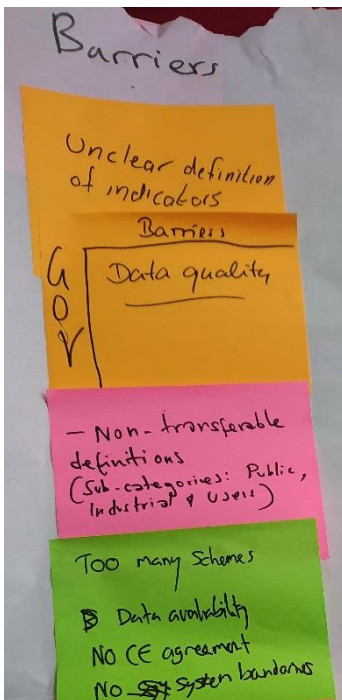 Barriers
Unclear definition
of indicators
Barriers
GOV
Data quality
- Non-transferable
definitions
(Sub-categories: Public,
Industrial & Users)
Too many Schemes
Data availability
NO CE agreement
No System bandaries